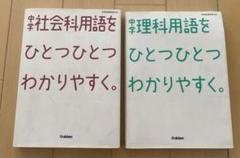 中学
社会科用語を
ひとつひとつ
わかりやすく。
Gakken
中学
理科用語を
ひとつひとつ
わかりやすく。
Gakken